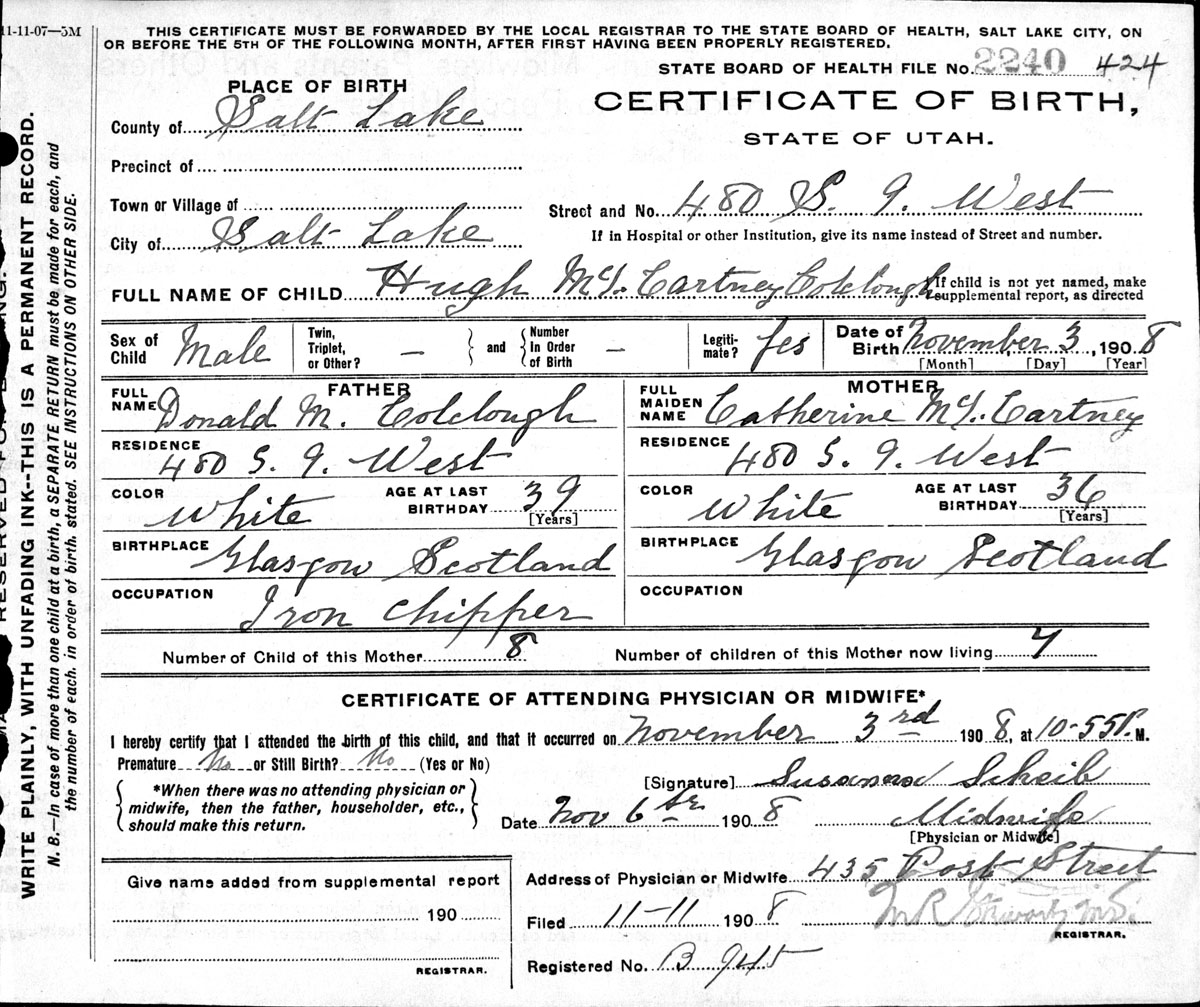 11-11-07—5M
THIS CERTIFICATE MUST BE FORWARDED BY THE LOCAL REGISTRAR TO THE STATE BOARD OF HEALTH, SALT LAKE CITY, ON
OR BEFORE THE 5TH OF THE FOLLOWING MONTH, AFTER FIRST HAVING BEEN PROPERLY REGISTERED.
STATE BOARD OF HEALTH FILE No. 2240 424
PLACE OF BIRTH
CERTIFICATE OF BIRTH,
STATE OF UTAH.
County of Salt Lake
Precinct of
Town or Village of
Street and No. 480 S. 9. West
City of Salt Lake
If in Hospital or other Institution, give its name instead of Street and number.
FULL NAME OF CHILD Hugh Mc. Cartney Colclough
If child is not yet named, make
supplemental report, as directed
Sex of Child Male
Twin, Triplet, or Other? —
and
Number In Order of Birth —
Legiti-mate? Yes
Date of Birth November 3, 1908
[Month] [Day] [Year]
FATHER
FULL NAME Donald M. Colclough
RESIDENCE 480 S. 9. West
COLOR White
AGE AT LAST BIRTHDAY 39
[Years]
BIRTHPLACE Glasgow Scotland
OCCUPATION Iron Chipper
MOTHER
FULL MAIDEN NAME Catherine Mc. Cartney
RESIDENCE 480 S. 9. West
COLOR White
AGE AT LAST BIRTHDAY 36
[Years]
BIRTHPLACE Glasgow Scotland
OCCUPATION
Number of Child of this Mother 8
Number of children of this Mother now living 7
CERTIFICATE OF ATTENDING PHYSICIAN OR MIDWIFE*
I hereby certify that I attended the birth of this child, and that it occurred on November 3rd 1908, at 10-55 P. M.
Premature No or Still Birth? No (Yes or No)
*When there was no attending physician or
midwife, then the father, householder, etc.,
should make this return.
[Signature] Susanna Scheib
Date Nov 6th 1908 Midwife
[Physician or Midwife]
Give name added from supplemental report
190
REGISTRAR.
Address of Physician or Midwife 435 Post Street
Filed 11-11 1908 M R Stewart M.D.
REGISTRAR.
Registered No. B 945
WRITE PLAINLY, WITH UNFADING INK--THIS IS A PERMANENT RECORD.
N. B.—In case of more than one child at a birth, a SEPARATE RETURN must be made for each, and
the number of each, in order of birth, stated. SEE INSTRUCTIONS ON OTHER SIDE.